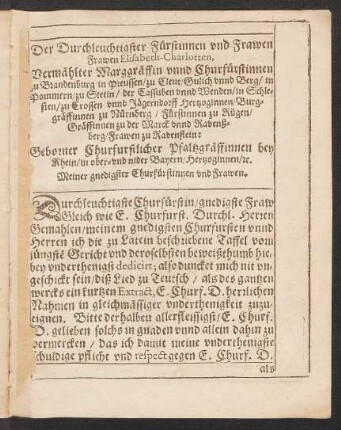 Der Durchleuchtigster Fürstinnen vnd Frawen
Frawen Elisabeth-Charlotten,
Vermählter Marggräffin vnnd Churfürstinnen
zu Brandenburg in Preussen/zu Cleve/Gulich vnnd Berg/in
Pommern/zu Stetin/der Cassuben vnnd Wenden/in Schle-
sien/zu Crossen vnnd Jägerndorff Hertzoginnen/Burg-
gräffinnen zu Nürnberg/Fürstinnen zu Rügen/
Gräffinnen zu der Marck vnnd Ravenß-
berg/Frawen zu Ravenstein:
Geborner Churfurstlicher Pfaltzgräffinnen bey
Rhein/in ober-vnd nider Bayern/Hertzoginnen/ꝛc.
Meiner gnedigster Churfürstinnen vnd Frawen.
Durchleuchtigste Churfürstin/gnedigste Fraw
Gleich wie E. Churfurst. Durchl. Herren
Gemahlen/meinem gnedigsten Churfursten vnnd
Herren ich die zu Latein beschriebene Taffel vom
jüngste Gericht vnd deroselbsten beweißthumb hie-
bey vnderthenigst dedicirt; also duncket mich nit vn-
geschickt sein/diß Lied zu Teutsch/als des gantzen
wercks ein kurtzen Extract, E. Churf. D. herrlichem
Nahmen in gleichmässiger vnderthenigkeit zuzu-
eignen. Bitte derhalben allerfleissigst/E. Churf.
D. gelieben solchs in gnaden vnnd allein dahin zu
vermercken/das ich damit meine vnderthenigste
schuldige pflicht vnd respect gegen E. Churf. D.
als